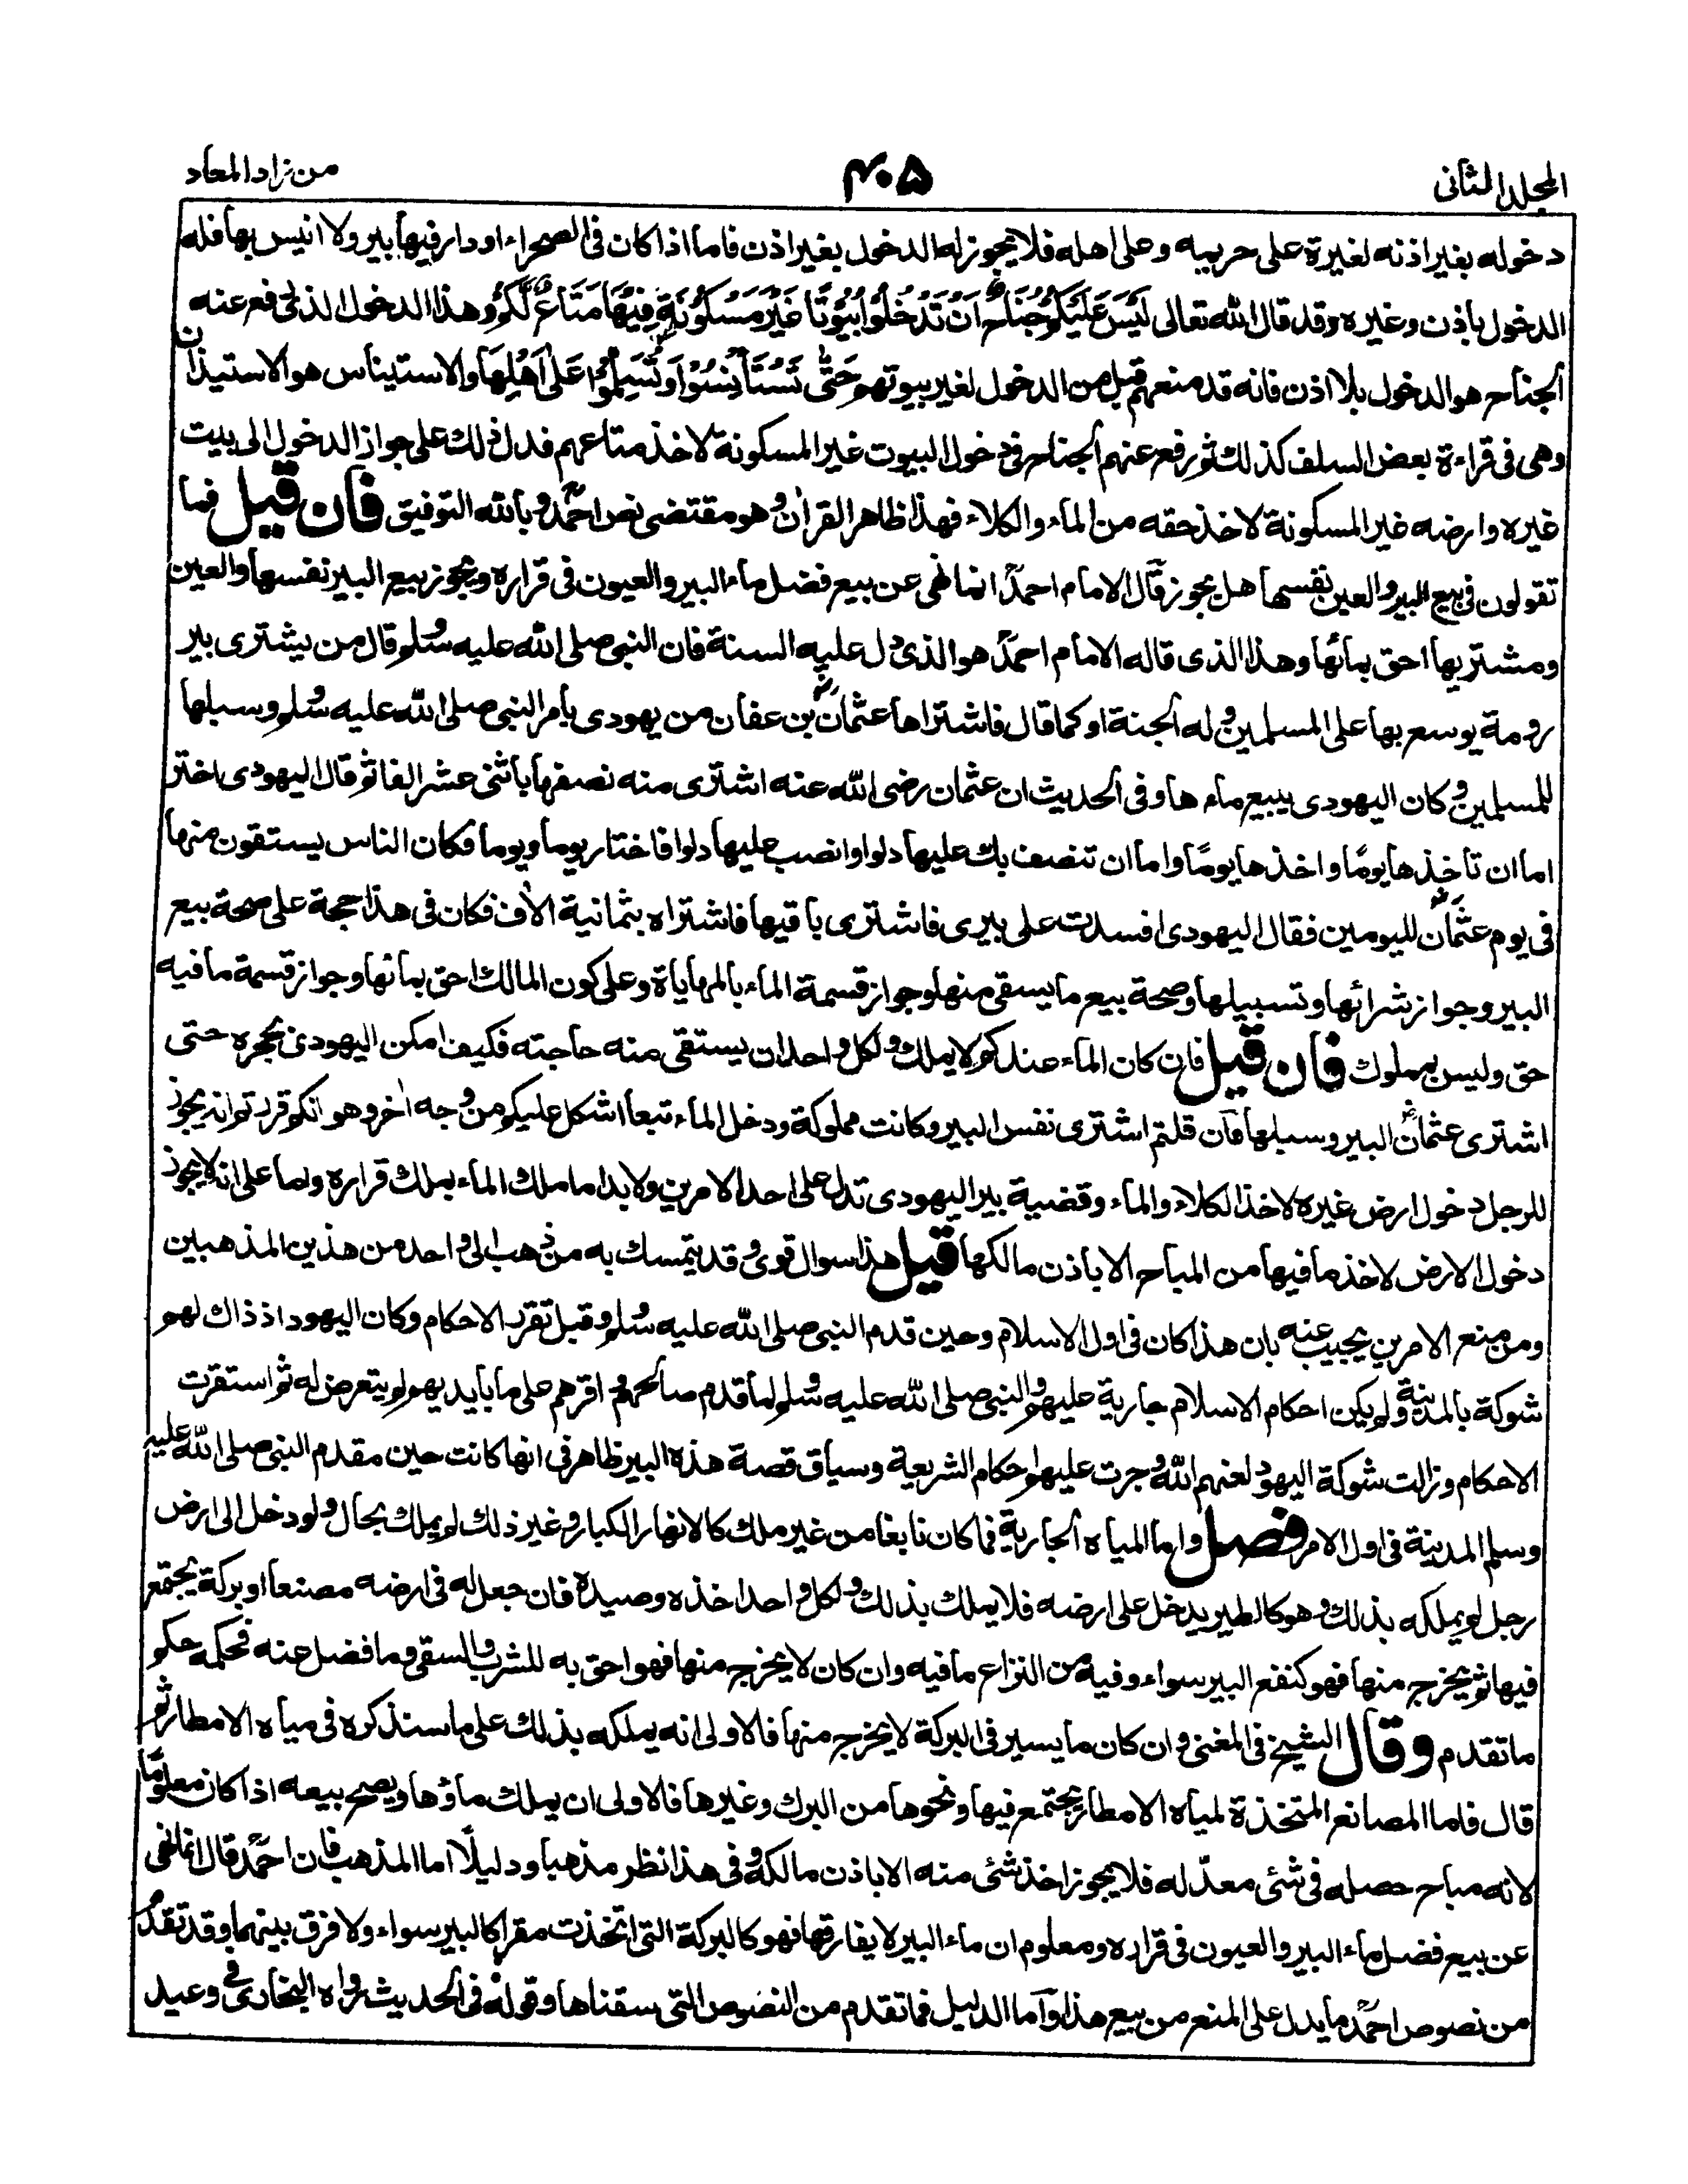 المجلد الثانى
۴۰۵
من زاد المعاد
دخوله بغير اذنه لغيرة على حريمه وعلى اهله فلا يجوز له الدخول بغير اذن فاما اذا كان فى الصحراء او دار فيها بير ولا انيس بها فله
الدخول باذن وغيره وقد قال الله تعالى لَيْسَ عَلَيْكُمْ جُنَاحٌ اَنْ تَدْخُلُوْا بُيُوْتًا غَيْرَ مَسْكُوْنَةٍ فِيْهَا مَتَاعٌ لَّكُمْ وهذا الدخول الذى رفع عنه
الجناح هو الدخول بلا اذن فانه قد منعهم قبل من الدخول لغير بيوتهم حَتّٰى تَسْتَأْنِسُوْا وَتُسَلِّمُوْا عَلٰى اَهْلِهَا والاستيناس هو الاستيذان
وهى فى قراءة بعض السلف كذلك ثم رفع عنهم الجناح فى دخول البيوت غير المسكونة لاخذ متاعهم فدل ذلك على جواز الدخول الى بيت
غيره وارضه غير المسكونة لاخذ حقه من الماء والكلاء فهذا ظاهر القراٰن وهو مقتضى نص احمدؒ وبالله التوفيق فان قيل فما
تقولون فى بيع البير والعين نفسها هل يجوز قال الامام احمدؒ انما نهى عن بيع فضل ماء البير والعيون فى قراره ويجوز بيع البير نفسها والعين
ومشتريها احق بمائها وهذا الذى قاله الامام احمدؒ هو الذى دل عليه السنة فان النبى صلى الله عليه وسلم قال من يشترى بير
رومة يوسع بها على المسلمين وله الجنة او كما قال فاشتراها عثمانؓ بن عفان من يهودى بامر النبى صلى الله عليه وسلم وسبلها
للمسلمين وكان اليهودى يبيع ماءها وفى الحديث ان عثمان رضى الله عنه اشترى منه نصفها باثنى عشر الفا ثم قال اليهودى اختر
اما ان تاخذها يومًا واخذها يومًا واما ان تنصف بك عليها دلوا وانصب عليها دلوا فاختار يوما ويوما فكان الناس يستقون منها
فى يوم عثمانؓ لليومين فقال اليهودى افسدت على بيرى فاشترى باقيها فاشتراه بثمانية الاٰف فكان فى هذا حجة على صحة بيع
البير وجواز شرائها وتسبيلها وصحة بيع ما يسقى منها وجواز قسمة الماء بالمهاياة وعلى كون المالك احق بمائها وجواز قسمة ما فيه
حق وليس بمملوك فان قيل فان كان الماء عندكم لا يملك ولكل واحد ان يستقى منه حاجته فكيف امكن اليهودى بحجره حتى
اشترى عثمانؓ البير وسبلها فان قلتم اشترى نفس البير وكانت مملوكة ودخل الماء تبعا اشكل عليكم من وجه اٰخر وهو انكم قررتم انه يجوز
للرجل دخول ارض غيره لاخذ الكلاء والماء وقضية بير اليهودى تدل على احد الامرين ولا بد اما ملك الماء بملك قراره واما على انه لا يجوز
دخول الارض لاخذ ما فيها من المباح الا باذن مالكها قيل هذا سوال قوى وقد يتمسك به من ذهب الى واحد من هذين المذهبين
ومن منع الامرين يجيب عنه بان هذا كان فى اول الاسلام وحين قدم النبى صلى الله عليه وسلم وقبل تقرر الاحكام وكان اليهود اذ ذاك لهم
شوكة بالمدينة ولم يكن احكام الاسلام جارية عليهم والنبى صلى الله عليه وسلم لما قدم صالحهم واقرهم على ما بايديهم ولم يتعرض له ثم استقرت
الاحكام وزالت شوكة اليهود لعنهم الله وجرت عليهم احكام الشريعة وسياق قصة هذه البير ظاهر فى انها كانت حين مقدم النبى صلى الله عليه
وسلم المدينة فى اول الامر فصل واما المياه الجارية فما كان نابغا من غير ملك كالانهار الكبار وغير ذلك لم يملك بحال ولو دخل الى ارض
رجل لم يملكه بذلك وهو كالطير يدخل على ارضه فلا يملك بذلك ولكل واحد اخذه وصيده فان جعل له فى ارضه مصنعا او بركة يجتمع
فيها ثم يخرج منها فهو كنفع البير سواء وفيه من النزاع ما فيه وان كان لا يخرج منها فهو احق به للشرب والسقى وما فضل عنه فحكمه حكم
ما تقدم وقال الشيخ فى المغنى وان كان ما يسير فى البركة لا يخرج منها فالاولى انه يملكه بذلك على ما سنذكره فى مياه الامطار ثم
قال فاما المصانع المتخذة لمياه الامطار يجتمع فيها ونحوها من البرك وغيرها فالاولى ان يملك ماؤها ويصح بيعه اذا كان معلومًا
لانه مباح حصله فى شئ معدّ له فلا يجوز اخذ شئ منه الا باذن مالكه وفى هذا نظر مذهبا ودليلًا اما المذهب فان احمدؒ قال انما نهى
عن بيع فضل ماء البير والعيون فى قراره ومعلوم ان ماء البير لا يفارقها فهو كالبركة التى اتخذت مقرا كالبير سواء ولا فرق بينهما وقد تقدم
من نصوص احمدؒ ما يدل على المنع من بيع هذا واما الدليل فما تقدم من النصوص التى سقناها وقوله فى الحديث رواه البخارى فى وعيد